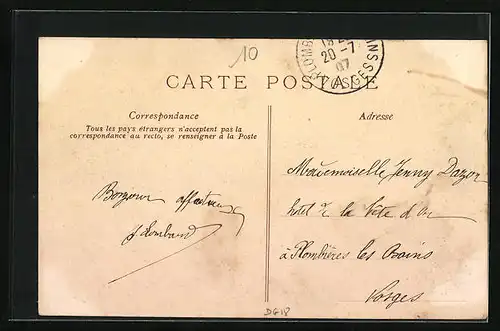 10
PLOMBI
INS
18
20 -7
07
VOSGES
CARTE POSTALE
Correspondance
Tous les pays étrangers n'acceptent pas la
correspondance au recto, se renseigner à la Poste
Adresse
Bonjour affectueux
Lombard
Mademoiselle Jenny Dazon
hôtel de la Tête d'Or
à Plombières les Bains
Vosges
DG18